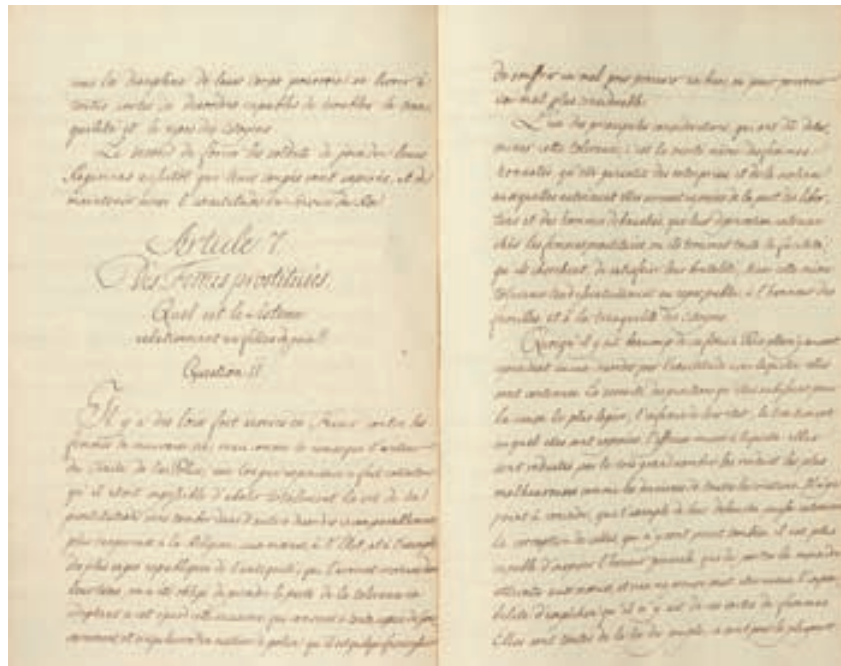 sous la discipline de leurs corps pourroient se livrer à
toutes sortes de desordres capables de troubler la tran
quilité et le repos des citoyens
Le second de forcer les soldats de joindre leurs
Regimens aussitot que leurs congés sont expirés, et de
maintenir ainsi l'exactitude du Service du Roi
Article 7
Des Femmes prostituées.
Quel est le Sisteme
relativement aux filles de joie?
Question 11
Il y a des loix fort severes en France contre les
femmes de mauvaise vie, mais comme le remarque l'auteur
du Traité de la Police, une longue experience a fait connoitre
qu'il étoit impossible d'abolir totalement le vice de la
prostitution sans tomber dans d'autres desordres incomparablement
plus à la Religion, aux mœurs, à l'Etat, et à l'exemple
des plus sages republiques de l'antiquité, qui l'avoient reconnu
on a été obligé de prendre le parti de la tolerance en
adoptant à cet egard cette maxime, qui convient à toute espece de gou
vernement et en matiere de police, qu'il est quelquefois
de souffrir un mal pour procurer un bien, ou pour prevenir
un mal plus considerable.
L'une des principales considerations qui ont dû deter
miner cette tolerance, c'est la sureté même des femmes
honnetes, qu'elle garantit des entreprises et de la violence
auxquelles autrement elles seroient exposées de la part des liber
tins et des hommes debauchés, que leur depravation entraine
chés les femmes prostituées ou ils trouvent toute la facilité
qu'ils cherchent, de satisfaire leur brutalité, ainsi cette même
tolerance tend essentiellement au repos public, à l'honneur des
familles et à la tranquilité des citoyens.
Quoiqu'il y ait beaucoup de ces filles à Paris,
par l'exactitude avec laquelle elles
sont contenues. La severité des punitions qu'elles subissent pour
la cause la plus legere, l'infamie de leur etat, le traitement
auquel elles sont exposées, l'affreuse misere à laquelle elles
sont reduites pour le très grand nombre les rendent les plus
malheureuses comme les dernieres de toutes les creatures. Il n'y a
point à craindre, que l'exemple de leur debauche
la corruption de celles, qui n'y ont point tombées, il est plus
capable d'inspirer l'horreur que de porter la moindre
atteinte aux mœurs,
bilité d'empêcher qu'il n'y ait de ces sortes de femmes
Elles sont toutes de la lie du peuple, et sont pour la plupart